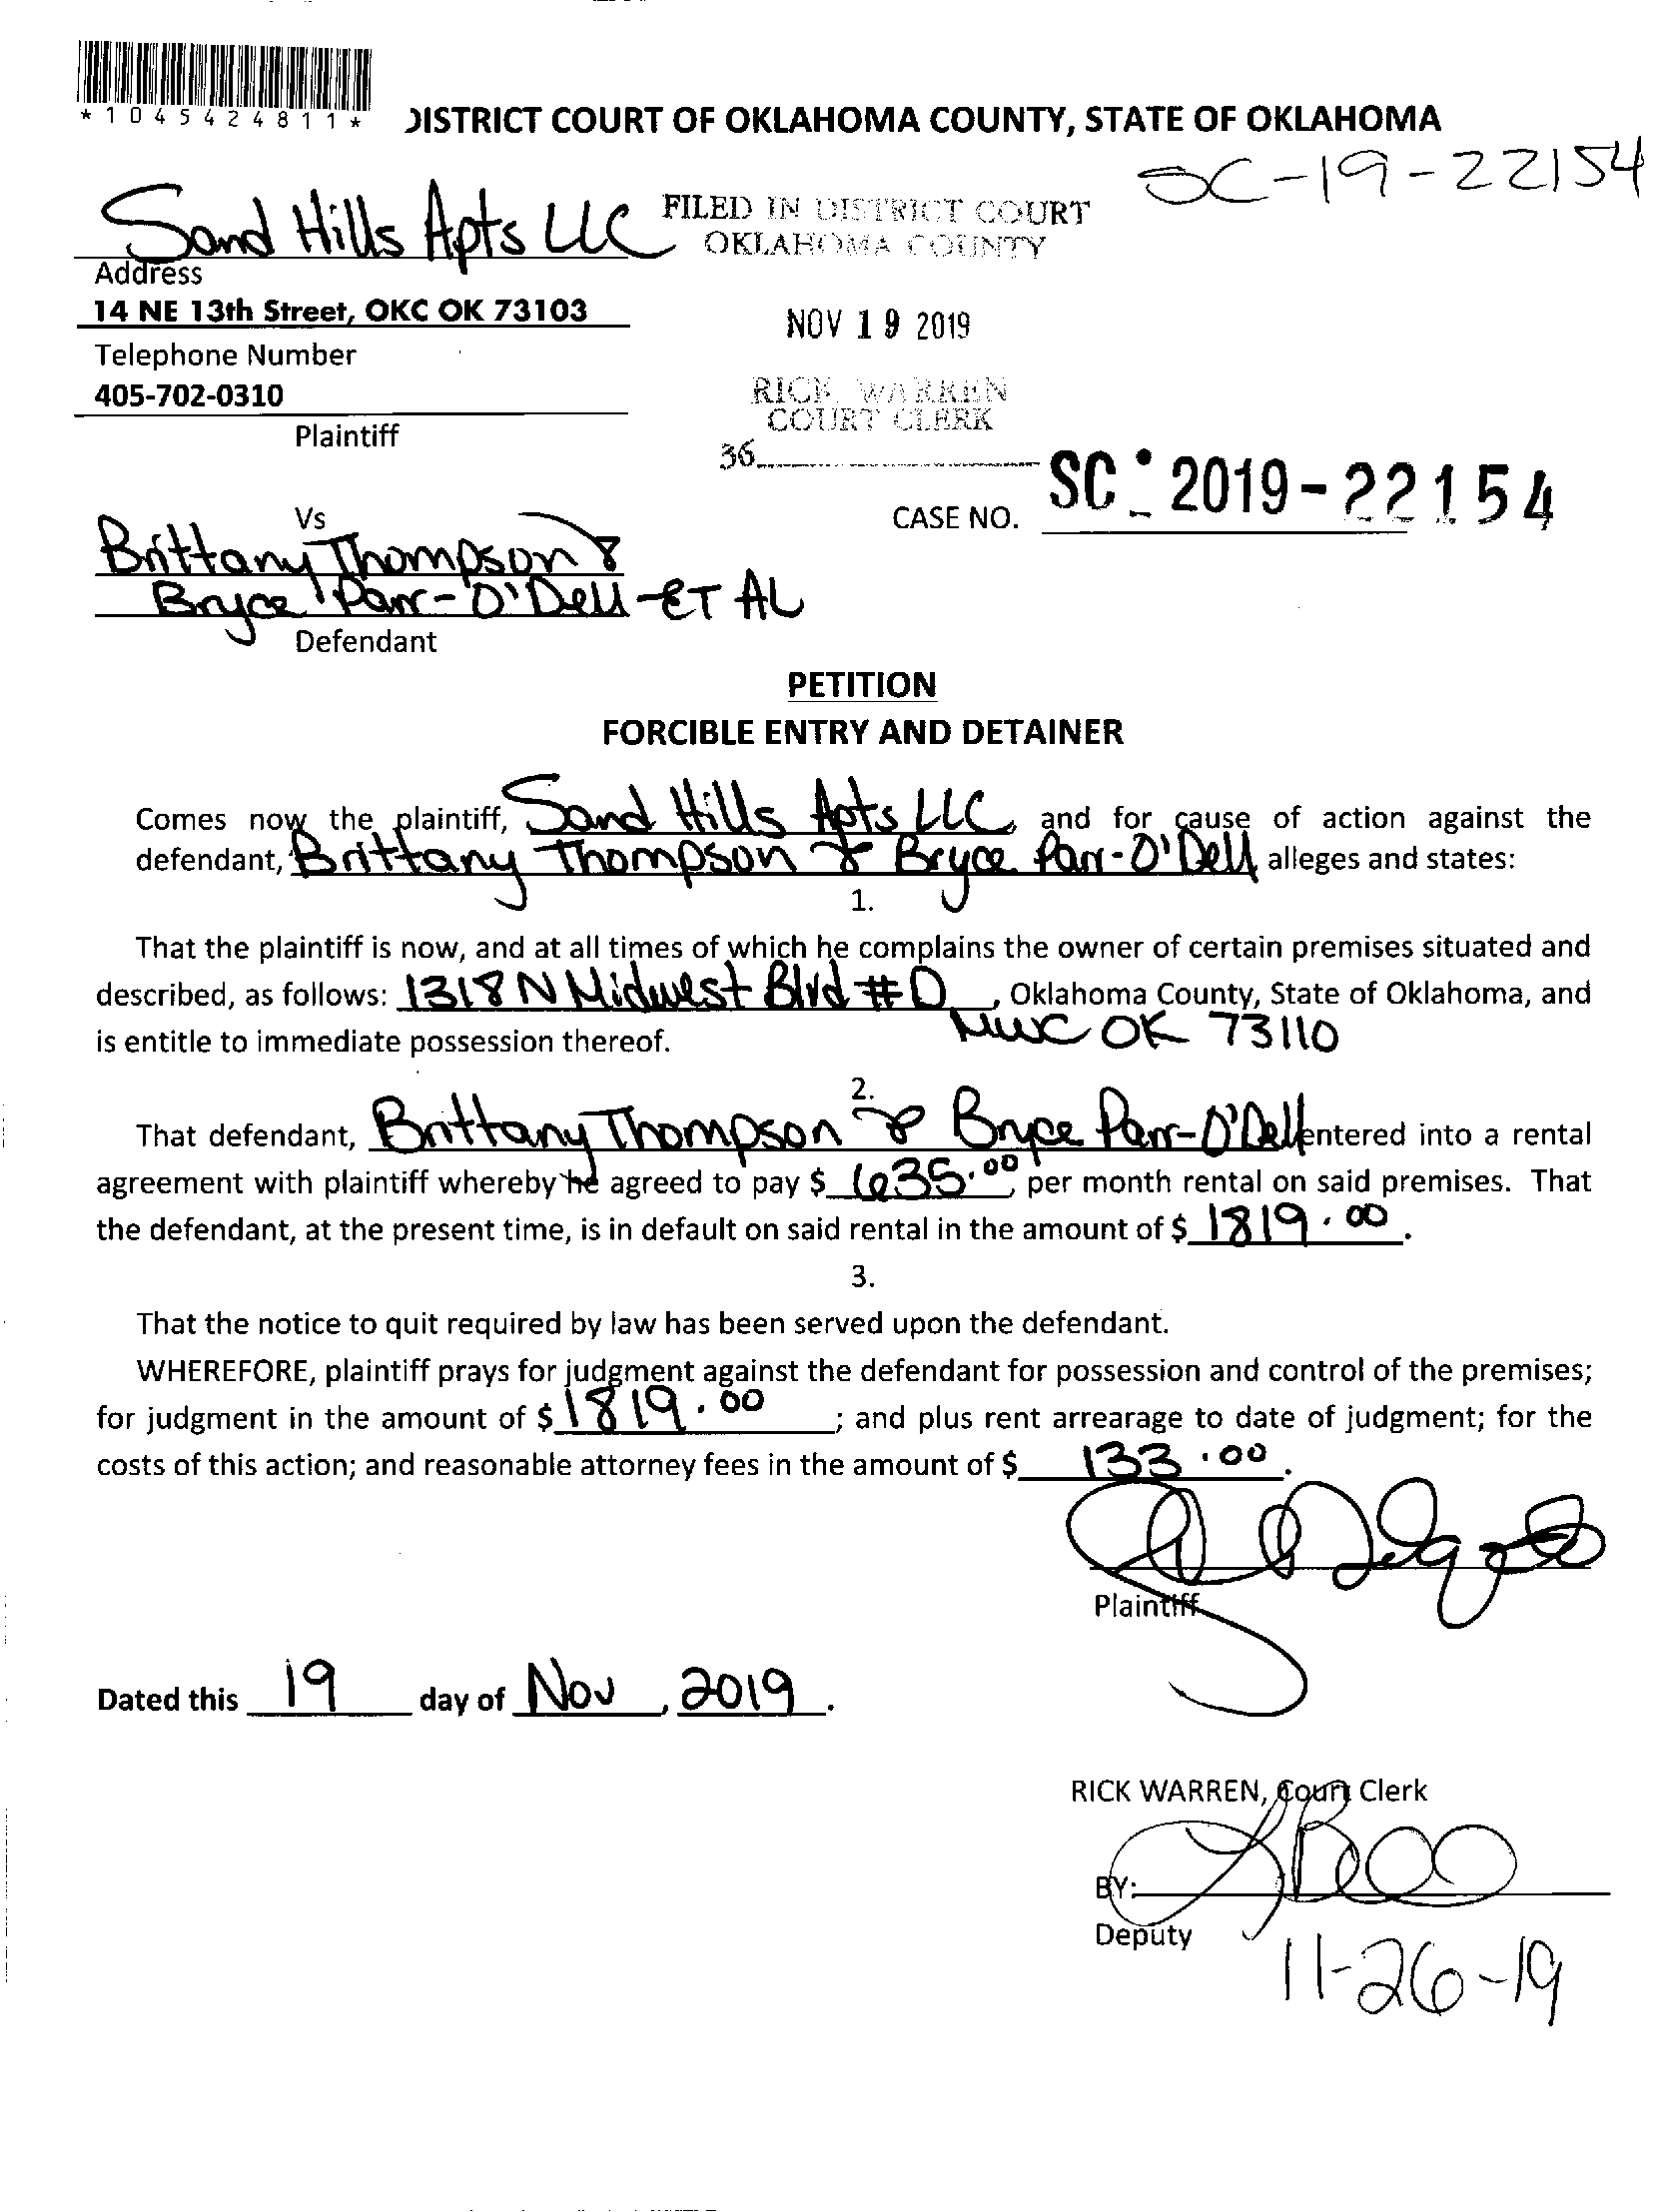 *1045424811*
DISTRICT COURT OF OKLAHOMA COUNTY, STATE OF OKLAHOMA
SC-19-22154
Sand Hills Apts LLC
FILED IN DISTRICT COURT
OKLAHOMA COUNTY
Address
14 NE 13th Street, OKC OK 73103
NOV 19 2019
Telephone Number
405-702-0310
RICK WARREN
COURT CLERK
Plaintiff
36
CASE NO. SC - 2019-22154
Vs
Brittany Thompson &
Bryce Parr-O'Dell - ET AL
Defendant
PETITION
FORCIBLE ENTRY AND DETAINER
Comes now the plaintiff, Sand Hills Apts LLC, and for cause of action against the
defendant, Brittany Thompson & Bryce Parr-O'Dell alleges and states:
1.
That the plaintiff is now, and at all times of which he complains the owner of certain premises situated and
described, as follows: 1318 N Midwest Blvd #D, Oklahoma County, State of Oklahoma, and
MWC OK 73110
is entitle to immediate possession thereof.
2.
That defendant, Brittany Thompson & Bryce Parr-O'Dell entered into a rental
agreement with plaintiff whereby he agreed to pay $ 635.00, per month rental on said premises. That
the defendant, at the present time, is in default on said rental in the amount of $ 1819.00.
3.
That the notice to quit required by law has been served upon the defendant.
WHEREFORE, plaintiff prays for judgment against the defendant for possession and control of the premises;
for judgment in the amount of $ 1819.00; and plus rent arrearage to date of judgment; for the
costs of this action; and reasonable attorney fees in the amount of $ 133.00.
Plaintiff
Dated this 19 day of Nov, 2019.
RICK WARREN, Court Clerk
BY:
Deputy
11-26-19